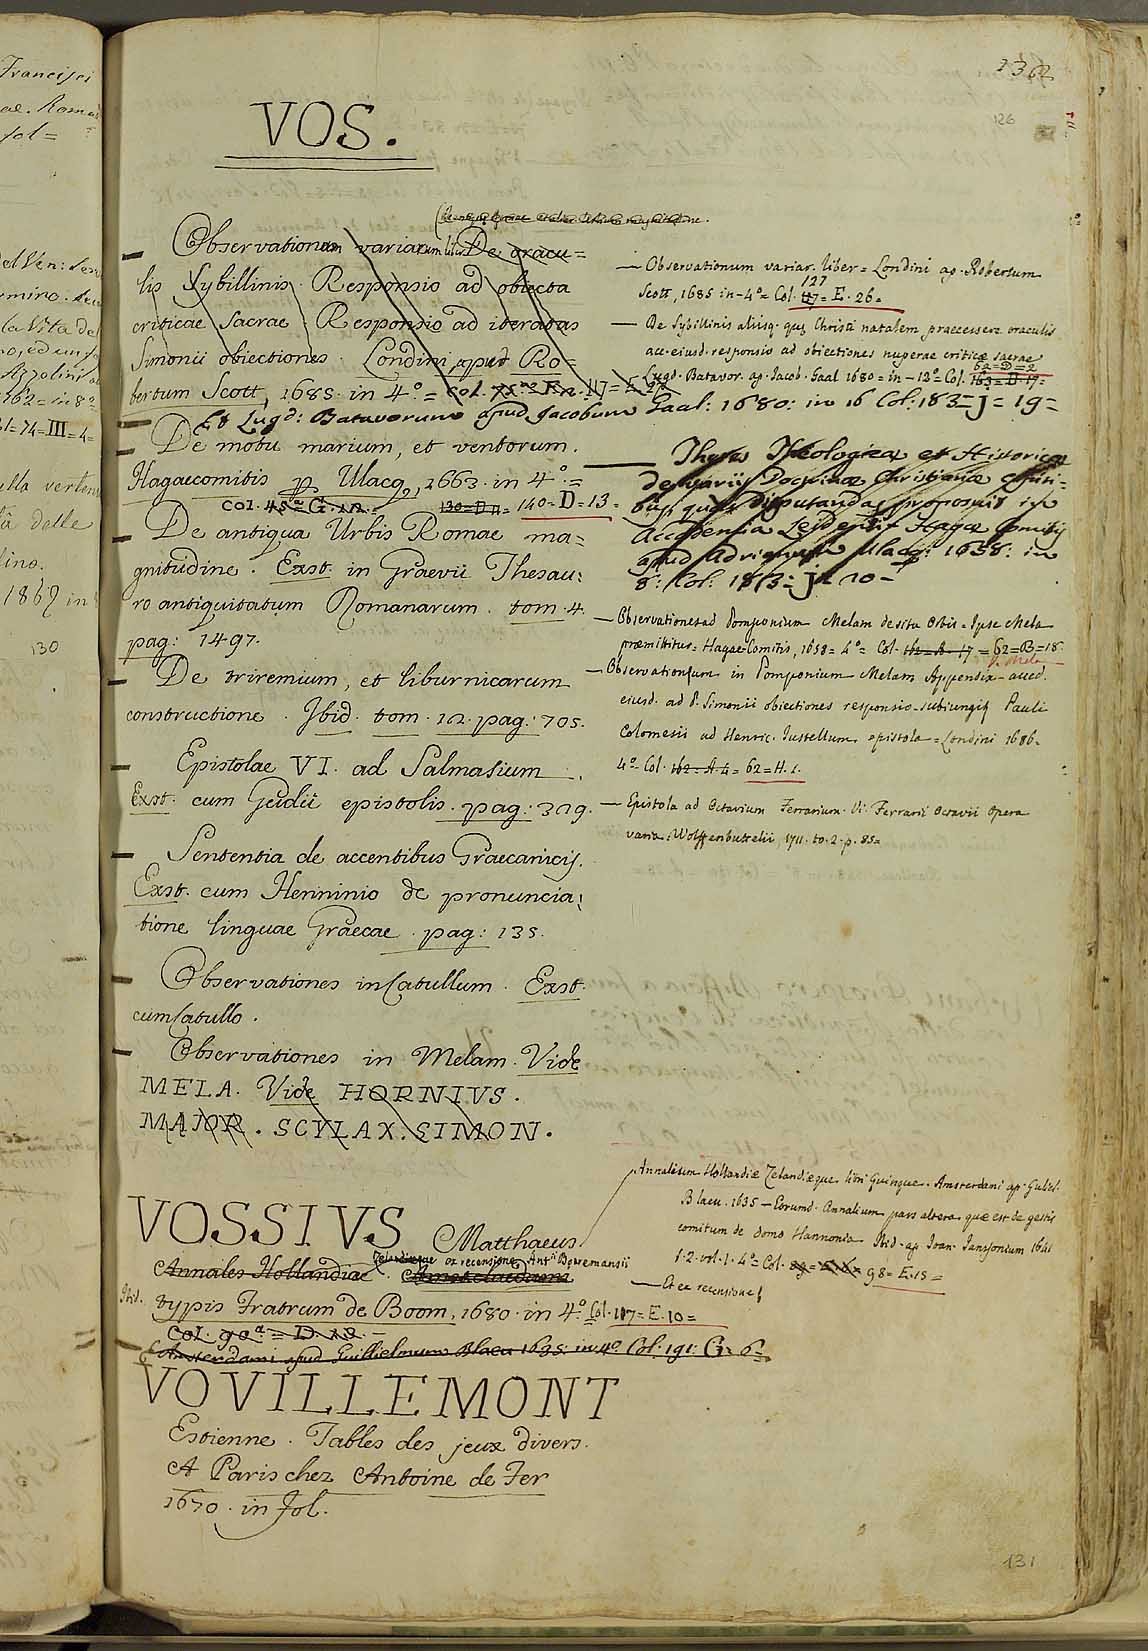 Francisci
ae. Romae
fol =
del Ven: Serv
la Vita del
Azzolini
1762 = in 8º
74 = III = 4 =
ella
delle
1869 in
130
1362
126
VOS.
Observationum variarum liber De oracu=
lis Sybillinis. Responsio ad obiecta
criticae Sacrae. Responsio ad iteratas
Simonii obiectiones. Londini, apud Ro=
bertum Scott, 1685. in 4º = 117 = E. 27
Et Lugd: Batavorum apud Jacobum Gaal: 1680: in 16 Col: 183 = j = 19 =
De motu marium, et ventorum.
Hagaecomitis Ulacq, 1663. in 4º. =
Col. 45ª G. 12. 130 = D 11 = 140 = D = 13 =
De antiqua Urbis Romae ma=
gnitudine. Exst. in Graevii Thesau:
ro antiquitatum Romanarum. tom. 4.
pag: 1497.
De triremium, et liburnicarum
constructione. Ibid. tom. 12. pag: 705.
Epistolae VI. ad Salmasium.
Exst. cum Gudii epistolis. pag: 329.
Sententia de accentibus Graecanicis.
Exst. cum Henninio de pronuncia:
tione linguae Graecae. pag: 135.
Observationes in Catullum. Exst.
cum Catullo.
Observationes in Melam. Vide
MELA. Vide HORNIVS.
MAIOR. SCYLAX. SIMON.
VOSSIVS Matthaeus.
Zelandiaeque ex recensione Antii Boremansii
Annales Hollandiae. Amstelaedami
Ibid. typis Fratrum de Boom, 1680. in 4º. Col. 117 = E. 10 =
Col. 90ª = D. 12. -
Amsterdami apud Guillielmum Blaeu 1635: in 4º Col: 191: G: 6 =
VOVILLEMONT
Estienne. Tables des jeux divers.
A Paris chez Antoine de Fer
1670. in fol.
— Observationum variar. liber = Londini ap. Robertum
Scott, 1685 in - 4º = Col. 127 = E. 26 =
— De Sybillinis aliisq. quę Christi natalem praecessere oraculis
acc. eiusd. responsio ad obiectiones nuperae criticae sacrae
62 = D = 2
Lugd. Batavor. ap. Jacob. Gaal 1680 = in - 12º = Col. 163 = D 17 =
Theses Theologicae et Historicae
de variis Doctrinae Christianae capiti=
bus quas disputandas proposuit in
Accademia Leydensi Hagae Comitis
apud Adrianum Ulacq: 1658: in
8: Col: 183 = j = 20 -
— Observationes ad Pomponium Melam de situ Orbis = Ipse Mela
praemittitur = Hagae-Comitis, 1658 = 4º = Col. 162 = A. 17 = 62 = B = 18
V. Mela
— Observationum in Pomponium Melam Appendix - acced.
eiusd. ad P. Simonii obiectiones responsio - subiungitur Pauli
Colomesii ad Henric. Justellum epistola = Londini 1686 =
4º - Col. 162 = A. 4 = 62 = H. 1.
— Epistola ad Octavium Ferrarium. Vi. Ferrarii Octavii Opera
varia. Wolffenbuttelii, 1711. to. 2. p. 85 =
Annalium Hollandiae Zelandiaeque libri Quinque. Amsterdami ap. Guliel.
Blaeu. 1635 — Eorumd. Annalium pars altera quae est de gestis
comitum de domo Hannonia Ibid. ap Joan. Janssonium 1641
t. 2. vol. 1. 4º = Col. 98 = E. 15 =
— Et ex recensione
131